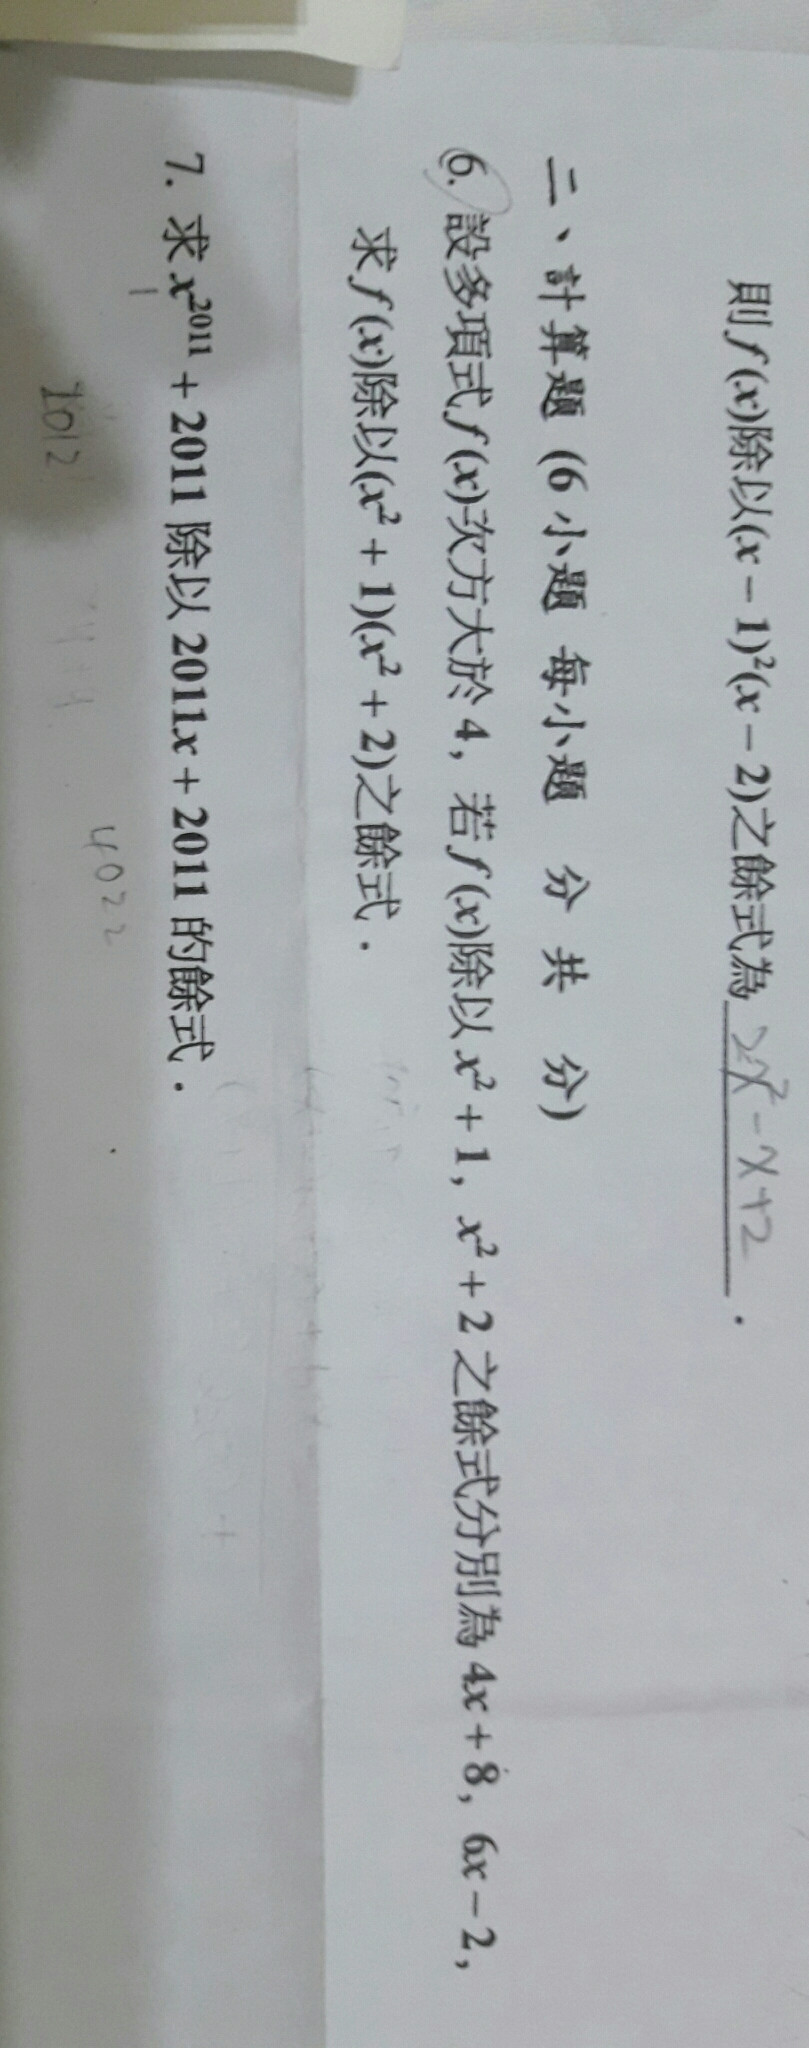 則f(x)除以(x－1)²(x－2)之餘式為 2x²－x+2 ．
二、計算題 (6 小題 每小題 分 共 分)
6. 設多項式f(x)次方大於4，若f(x)除以x²＋1，x²＋2之餘式分別為4x＋8，6x－2，
求f(x)除以(x²＋1)(x²＋2)之餘式．
7. 求x²⁰¹¹＋2011除以2011x＋2011的餘式．
4022
2012